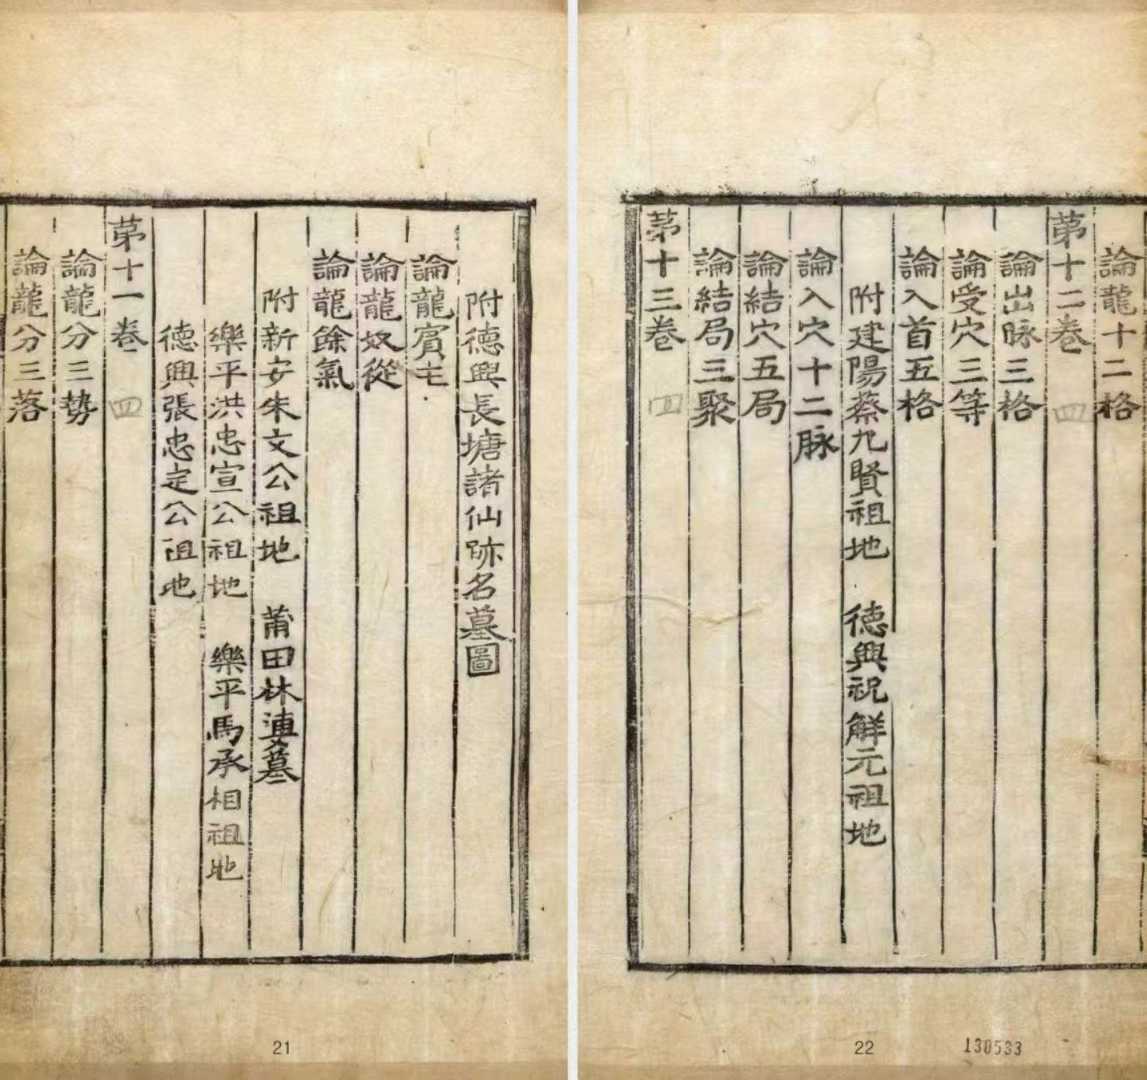 附德興長塘諸仙跡名墓圖
論龍賓主
論龍奴從
論龍餘氣
附新安朱文公祖地 莆田林墓
樂平洪忠宣公祖地 樂平馬承相祖地
德興張忠定公祖地
苐十一卷 四
論龍分三勢
論龍分三落
21
論龍十二格
苐十二卷 四
論出脉三格
論受穴三等
論入首五格
附建陽蔡九賢祖地 德興祝解元祖地
論入穴十二脉
論結穴五局
論結局三聚
苐十三卷 四
22
130533